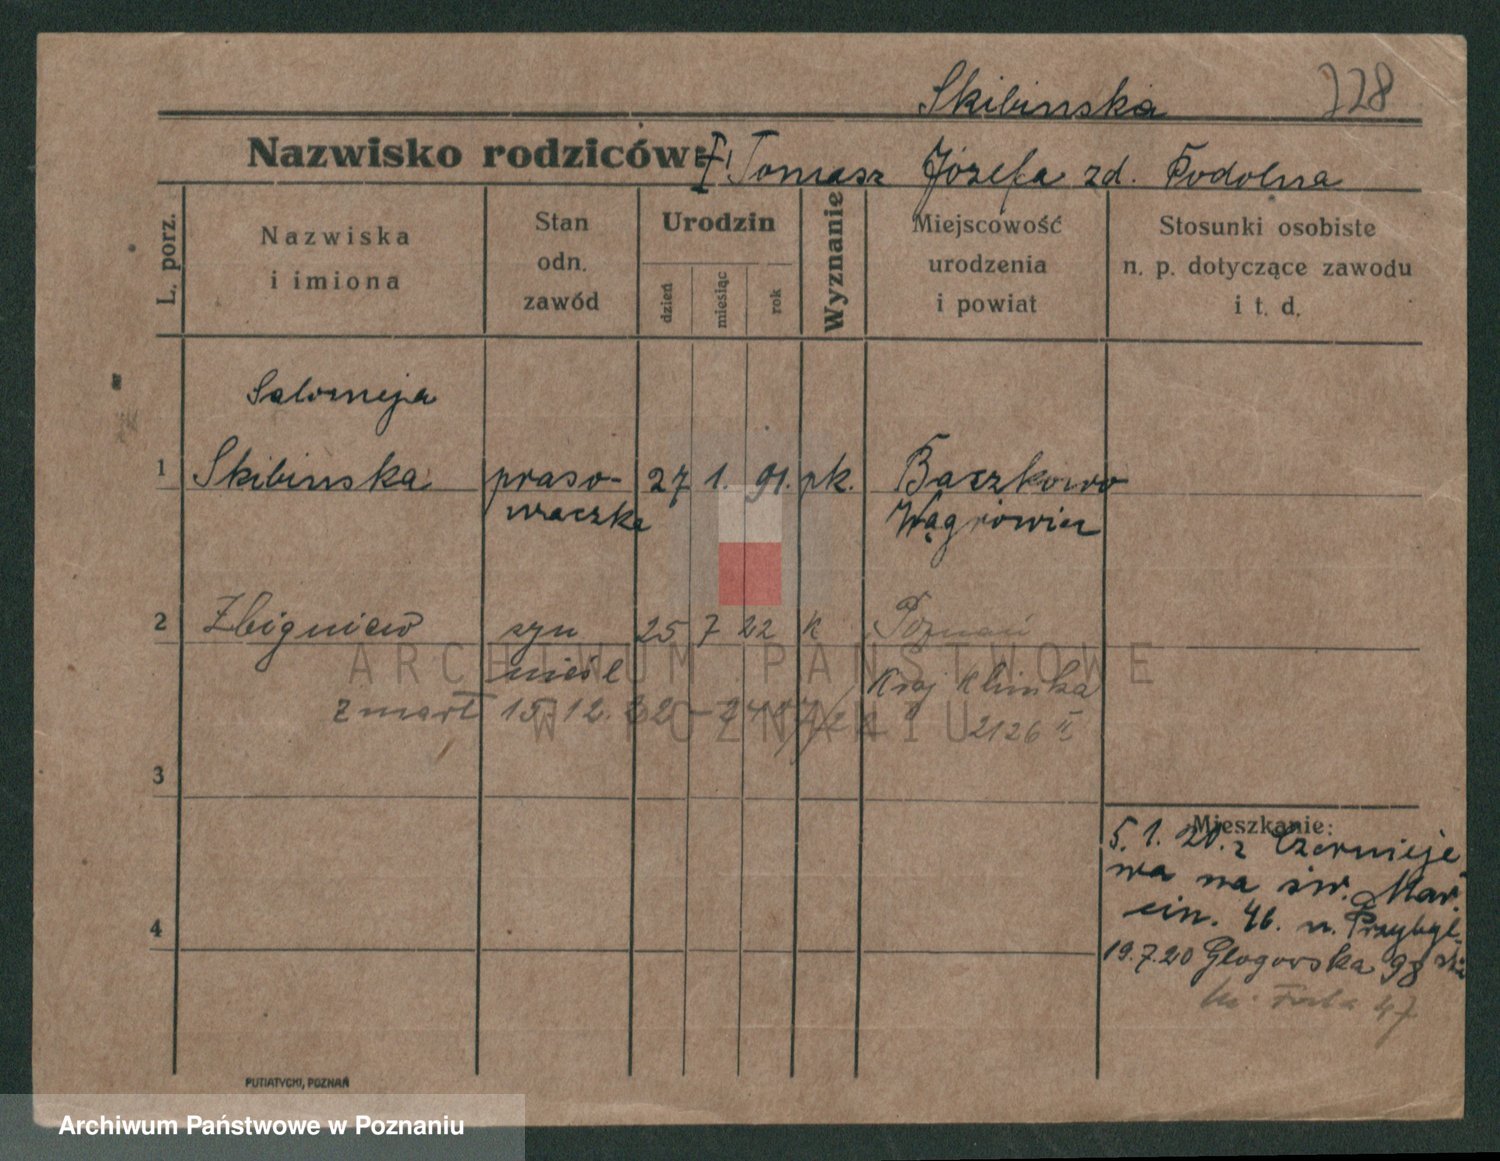 Skibinska 728
Nazwisko rodziców: Tomasz Józefa zd. Podolna
L. porz.
Nazwiska i imiona
Stan odn. zawód
Urodzin
dzień
miesiąc
rok
Wyznanie
Miejscowość urodzenia i powiat
Stosunki osobiste n. p. dotyczące zawodu i t. d.
Salomeja
1 Skibinska praso- 27 1. 91. rk. Baczkowo
waczka Wągrowiec
2 Zbigniew syn 25 7 22 k Poznań
nieśl Kraj Klinka
zmarł 15.12. 2126 II
3
Mieszkanie:
5. 1. 20. z Czernieje
wa na św. Mar.
cin. 46. u. Przybyl
19.7.20 Glogowska 98
47
4
PUTIATYCKI, POZNAŃ
ARCHIWUM PAŃSTWOWE
W POZNANIU
Archiwum Państwowe w Poznaniu